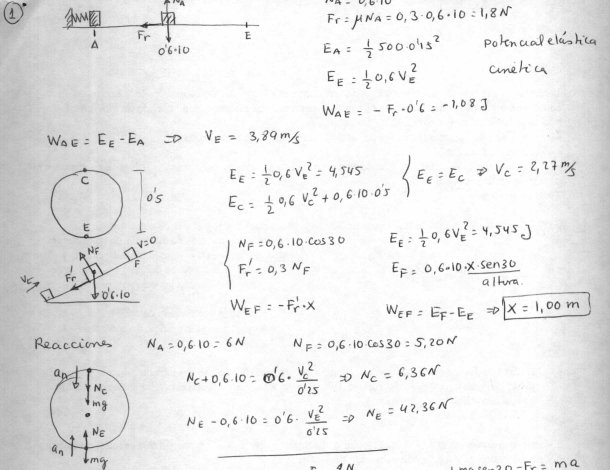 ① N_A N_A = 0,6·10
A Fr 0'6·10 E Fr = μN_A = 0,3·0,6·10 = 1,8N
E_A = 1/2 500·0'15² Potencial elástica
E_E = 1/2 0,6 V_E² Cinética
W_AE = -Fr·0'6 = -1,08 J
W_AE = E_E - E_A ⇒ V_E = 3,89 m/s
C E 0'5 E_E = 1/2 0,6 V_E² = 4,545
E_C = 1/2 0,6 V_C² + 0,6·10·0'5 { E_E = E_C ⇒ V_C = 2,27 m/s
N_F V=0 F Fr' V_E 0'6·10
N_F = 0,6·10·cos30 E_E = 1/2 0,6 V_E² = 4,545 J
Fr' = 0,3 N_F E_F = 0,6·10·x·sen30
altura.
W_EF = -Fr'·x W_EF = E_F - E_E ⇒ x = 1,00 m
Reacciones N_A = 0,6·10 = 6N N_F = 0,6·10 cos30 = 5,20N
an N_C mg N_C + 0,6·10 = 0'6· V_C²/0'25 ⇒ N_C = 6,36N
an N_E mg N_E - 0,6·10 = 0'6· V_E²/0'25 ⇒ N_E = 42,36N
- Fr = ma